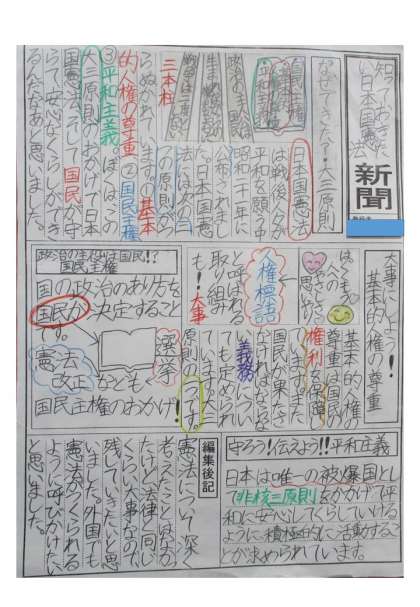 知っておきたい日本国憲法
新聞
なぜできた?!大三原則
国民主権
基本的人権の尊重
平和主義
日本国憲法
は戦後、人々が
平和を願う中
昭和二十一年に
公布されまし
た。日本国憲
法は次の三つ
の原則がつ
らぬかれています。①基本
的人権の尊重②国民主権
③平和主義。ぼくはこの
大三原則のおかげで日本
国憲法、そして国民が守
られて安心なくらしができて
いるんだなあと思いました。
三本柱
大事にしよう!
基本的人権の尊重
基本的人権の
権利を保障
国民が果たさ
なければならな
い義務につい
ても定められ
ていますが大
原則の一つです。
人権標語
と呼ばれる
取り組み
も!大事
政治の主役は国民!?
国民主権
国の政治のあり方を
国民が決定すること
です。
選挙
憲法
改正などもく
国民主権のおかげ!
守ろう!伝えよう!!平和主義
日本は唯一の被爆国とし
て非核三原則をかかげて平
和に安心してくらしていける
ように積極的に活動するこ
とが求められています。
編集後記
憲法について深く
考えたことはなか
ったけど法律と同じ
くらい大事なので
残していきたいと思
いました。外国でも
憲法がつくられる
ように呼びかけたい
と思いました。